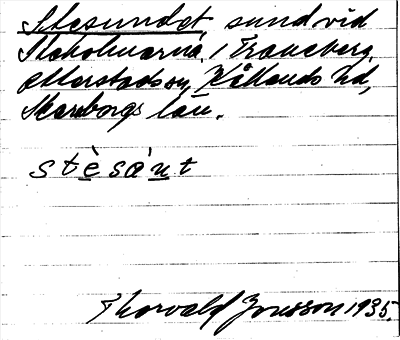 Stesundet, sund vid
Steholmarna, i Traneberg,
Otterstads sn, Kållands hd,
Skaraborgs län.
stèsa´u̲nt
Thorvald Jonsson 1935.